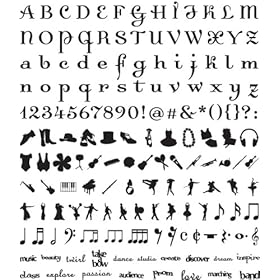 A B C D E F G H I J K L M
n o p q r s t u v w x y z
a b c d e f g h i j k l m
n o p q r s t u v w x y z
1234567890!@#&*(){}?:
music beauty twirl take a bow dance studio create discover dream inspire
class explore passion audience prom love marching band